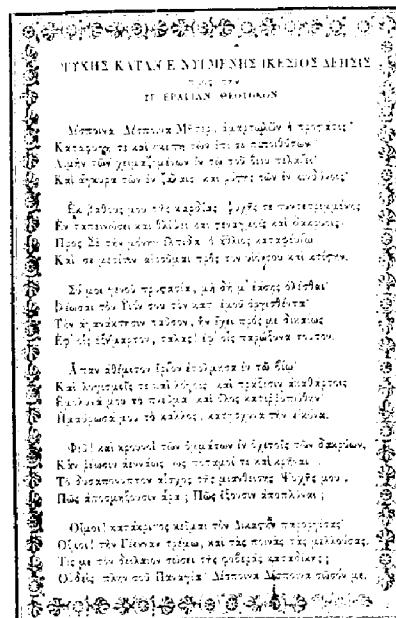 ΨΥΧΗΣ ΚΑΤΑΝΕΝΥΓΜΕΝΗΣ ΙΚΕΣΙΟΣ ΔΕΗΣΙΣ
προς την
ΥΠΕΡΑΓΙΑΝ ΘΕΟΤΟΚΟΝ
Δέσποινα Δέσποινα Μῆτερ, ἁμαρτωλῶν ἡ προστάτις
Καταφυγή τε καὶ σκέπη τῶν ἐπί σε πεποιθότων
Λιμὴν τῶν χειμαζομένων ἐν τῷ τοῦ βίου πελάγει
Καὶ ἄγκυρα τῶν ἐν ζάλαις καὶ ῥύστης τῶν ἐν κινδύνοις
Ἐκ βάθους μου τῆς καρδίας ψυχῆς τε συντετριμμένος
Ἐν ταπεινώσει καὶ θλίψει καὶ στεναγμοῖς καὶ δάκρυσι
Πρὸς Σὲ τὴν μόνην Ἐλπίδα ὁ ἄθλιος καταφεύγω
Καὶ σε μεσῖτιν αἰτοῦμαι πρὸς τὸν υἱόν σου καὶ κτίστην.
Σύ μοι γενοῦ προστασία, μὴ δή μ' ἐάσῃς ὀλέσθαι
Ἱλέωσαι τὸν Υἱόν σου τὸν κατ' ἐμοῦ ὀργισθέντα
Τὴν ἀγανάκτησιν παῦσον, ἣν ἔχει πρός με δικαίως
Ἐφ' οἷς ἐξήμαρτον, τάλας! ἐφ' οἷς παρώξυνα τοῦτον.
Ἅπαν ἀθέμιτον ἔργον ἐτόλμησα ἐν τῷ βίῳ
Καὶ λογισμοῖς τε καὶ λόγοις καὶ πράξεσιν ἀκαθάρτοις
Ἐμόλυνά μου τὸ πνεῦμα καὶ ὅλος κατερρυπώθην
Ἠμαύρωσά μου τὸ κάλλος, κατῄσχυνα τὴν εἰκόνα.
Φεῦ! καὶ κρουνοὶ τῶν ὀμμάτων ἐν ὀχετοῖς τῶν δακρύων,
Κἂν ῥέωσιν ἀεννάως ὡς ποταμοί τε καὶ κρῆναι,
Τὸ δυσαπόνιπτον αἶσχος τῆς μιανθείσης Ψυχῆς μου,
Πῶς ἀποσμήξουσιν ἆρα; Πῶς ἕξουσιν ἀποπλῦναι;
Οἴμοι! κατάκριτος κεῖμαι τὸν Δικαστὴν παροργίσας
Οἴμοι! τὴν Γέενναν τρέμω, καὶ τὰς ποινὰς τὰς μελλούσας.
Τίς με τὸν δείλαιον σώσει τῆς φοβερᾶς καταδίκης;
Οὐδεὶς πλὴν σοῦ Παναγία Δέσποινα Δέσποινα σῶσόν με.